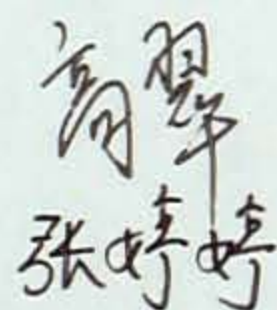 高翠
张婷婷